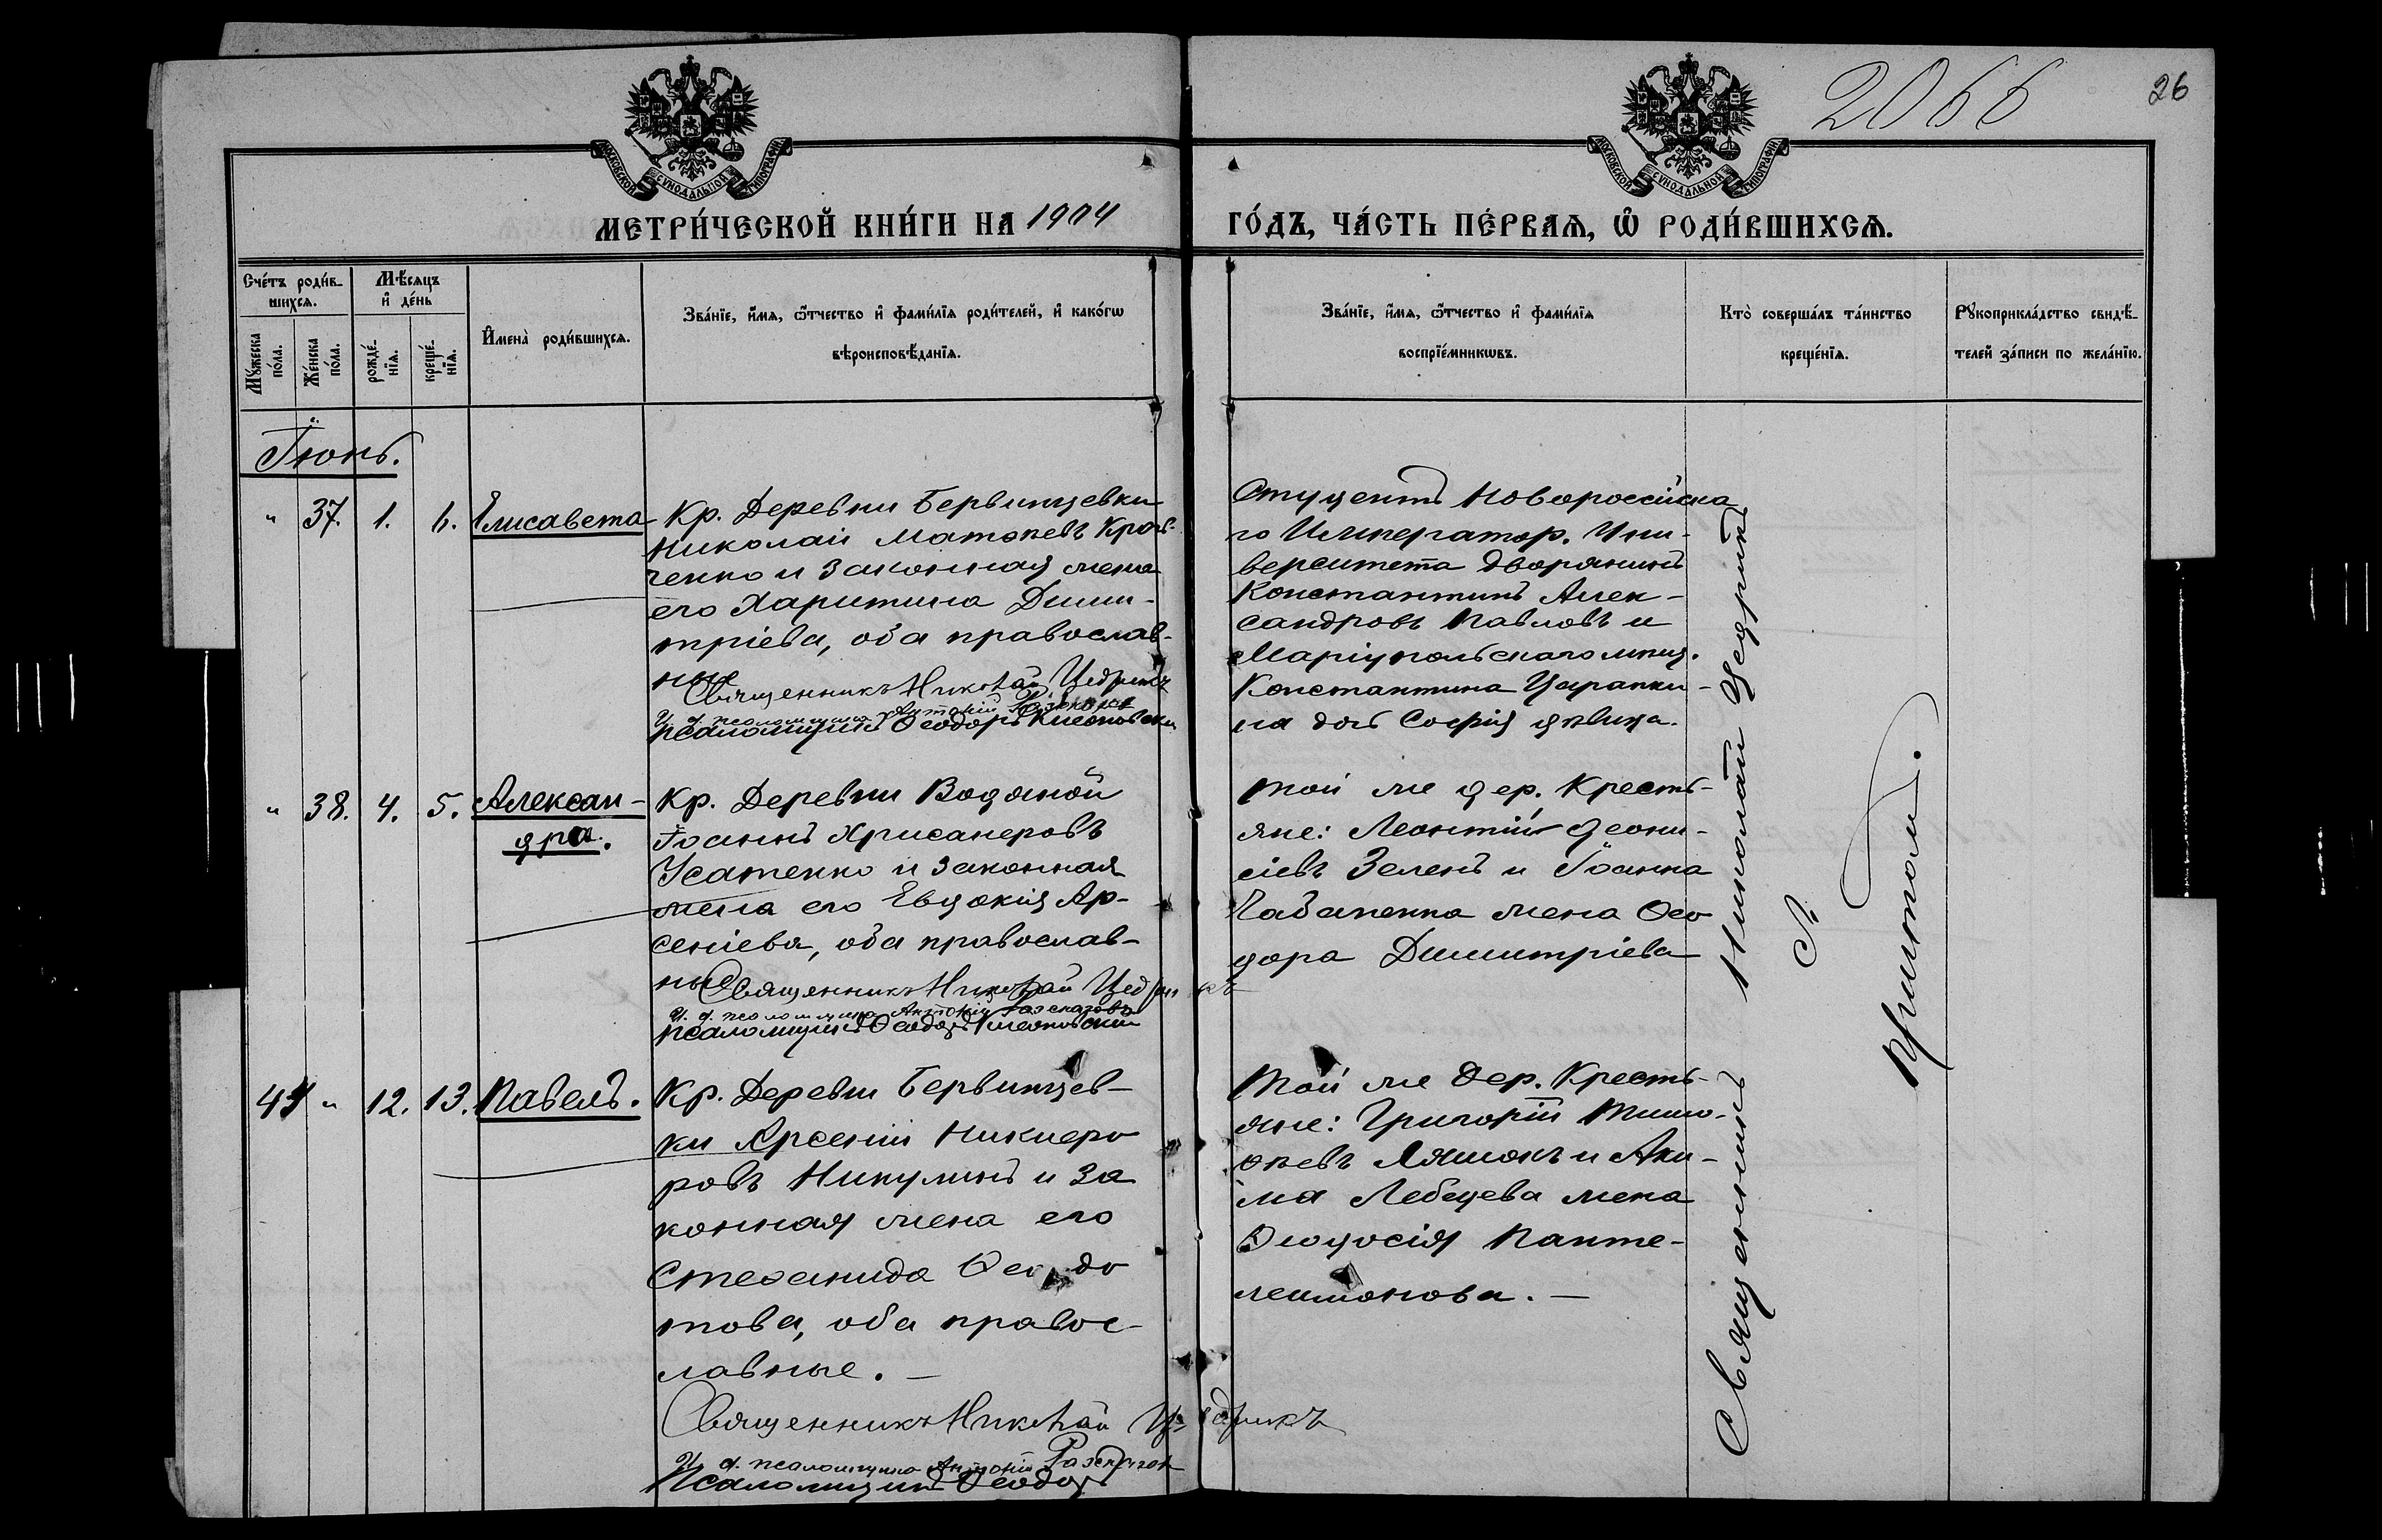 2066
26
МОСКОВСКОЙ СѴНОДАЛЬНОЙ ТИПОГРАФІИ
МОСКОВСКОЙ СѴНОДАЛЬНОЙ ТИПОГРАФІИ
МЕТРИ́ЧЕСКОЙ КНИ́ГИ НА 1904 ГО́ДЪ, ЧА́СТЬ ПЕ́РВАѦ, Ѡ҆ РОДИ́ВШИХСѦ.
Сче́тъ роди́в-
шихсѧ.
Мꙋ́жеска
по́ла.
Же́нска
по́ла.
Мѣ́сѧцъ
и҆ де́нь
рожде́-
нїѧ.
креще́-
нїѧ.
И҆мена̀ роди́вшихсѧ.
Зва́нїе, и҆́мѧ, ѻ҆́тчество и҆ фами́лїѧ роди́телей, и҆ како́гѡ
вѣроисповѣ́данїѧ.
Зва́нїе, и҆́мѧ, ѻ҆́тчество и҆ фами́лїѧ
воспрїе́мникѡвъ.
Кто̀ соверша́лъ та́инство
креще́нїѧ.
Рꙋкоприкла́дство свидѣ́-
телей за́писи по жела́нїю.
Іюнь.
" 37. 1. 6. Елисавета
Кр. Деревни Бервицевки
Николай Матѳеевъ Крав-
ченко и законная жена
его Харитина Дими-
тріева, оба православ-
ные
Священникъ Николай Цедрикъ
И. д. псаломщика Антоній
Псаломщикъ Ѳеодоръ
Студентъ Новороссійска
го Император. Уни-
верситета дворянинъ
Константинъ Алек-
сандровъ Павловъ и
Маріупольскаго мпщ.
Константина Царапки-
на дочь Софія дѣвица.
" 38. 4. 5. Алексан-
дра.
Кр. Деревни Водяной
Іоаннъ Хрисанфовъ
Усатенко и законная
жена его Евдокія Ар-
сеніева, оба православ-
ные
Священникъ Николай Цедрикъ
И. д. псаломщика Антоній
Псаломщикъ Ѳеодоръ
Той же дер. Кресть-
яне: Леонтій Діони-
сіевъ Зеленъ и Іоанна
Чабаненка жена Ѳео
дора Димитріева
44 " 12. 13. Павелъ.
Кр. Деревни Бервицев-
ки Арсеній Никифо
ровъ Никулинъ и за
конная жена его
Стефанида Ѳеодо
това, оба правос-
лавные. —
Священникъ Николай Цедрикъ
И. д. псаломщика Антоній
Псаломщикъ Ѳеодоръ
Той же дер. Кресть-
яне: Григорій Тимо-
ѳеевъ Ляшокъ и Аки-
ма Лебедева жена
Ѳеодосія Панте-
леимонова. —
Священникъ Николай Цедрикъ